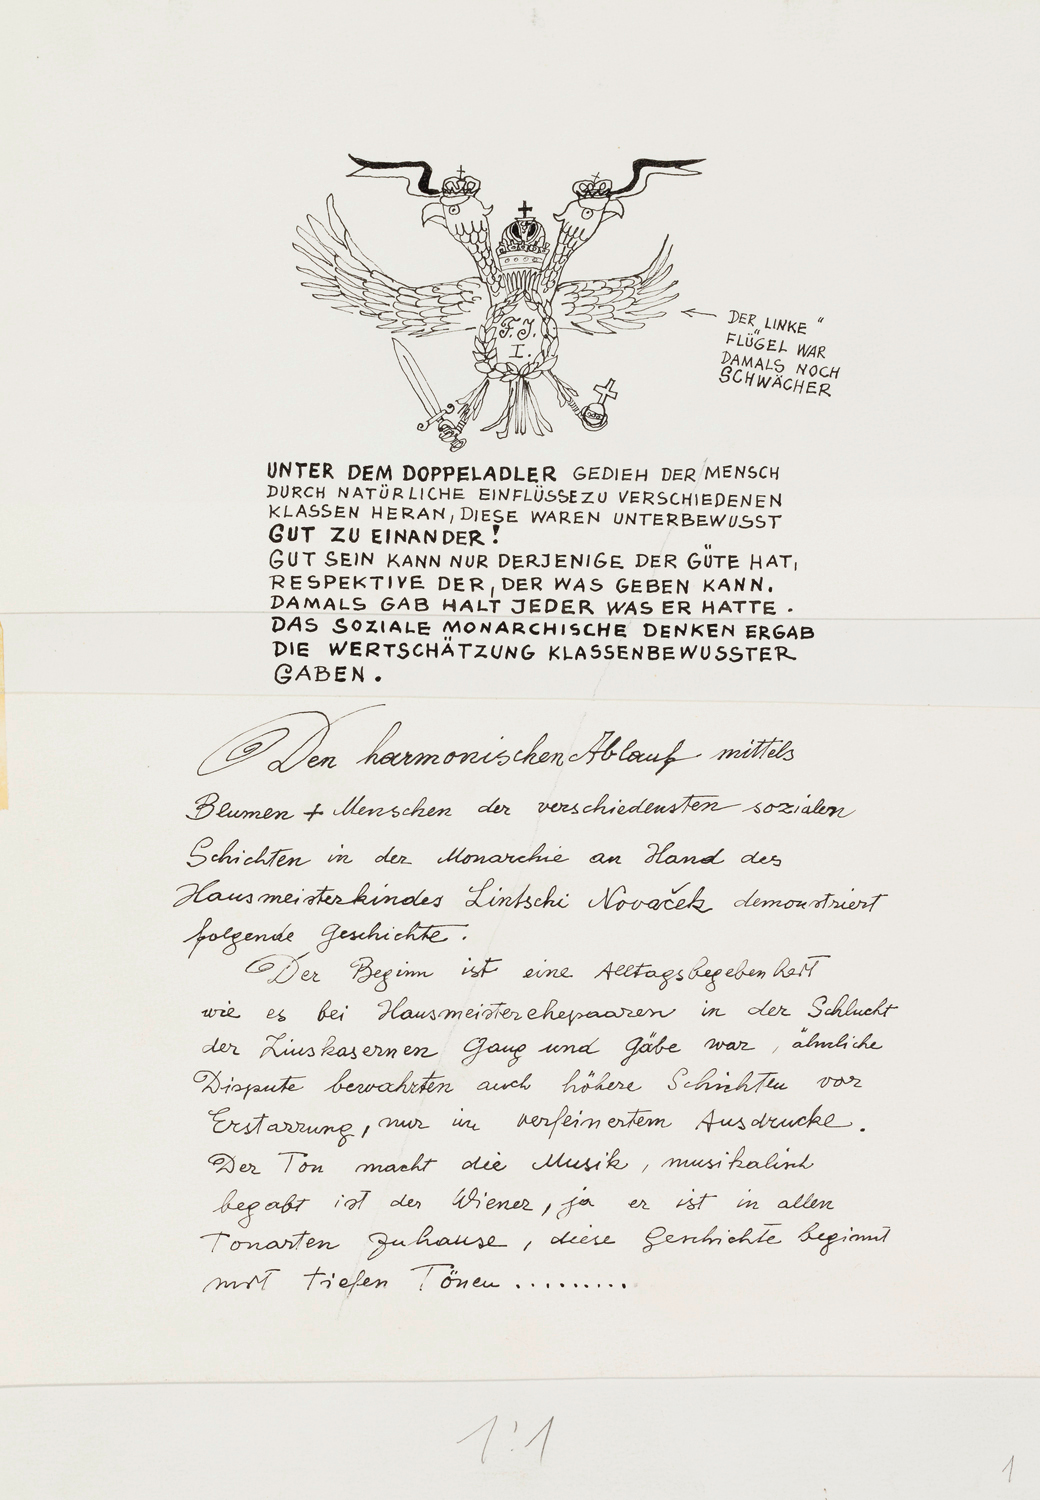 F. J.
I.
DER „LINKE“
FLÜGEL WAR
DAMALS NOCH
SCHWÄCHER
UNTER DEM DOPPELADLER GEDIEH DER MENSCH
DURCH NATÜRLICHE EINFLÜSSE ZU VERSCHIEDENEN
KLASSEN HERAN, DIESE WAREN UNTERBEWUSST
GUT ZU EINANDER!
GUT SEIN KANN NUR DERJENIGE DER GÜTE HAT,
RESPEKTIVE DER, DER WAS GEBEN KANN.
DAMALS GAB HALT JEDER WAS ER HATTE.
DAS SOZIALE MONARCHISCHE DENKEN ERGAB
DIE WERTSCHÄTZUNG KLASSENBEWUSSTER
GABEN.
Den harmonischen Ablauf mittels
Blumen + Menschen der verschiedensten sozialen
Schichten in der Monarchie an Hand des
Hausmeisterkindes Lintschi Novaček demonstriert
folgende Geschichte.
Der Beginn ist eine Alltagsbegebenheit
wie es bei Hausmeisterehepaaren in der Schlucht
der Zinskasernen Gang und Gäbe war, ähnliche
Dispute bewahrten auch höhere Schichten vor
Erstarrung, nur in verfeinertem Ausdrucke.
Der Ton macht die Musik, musikalisch
begabt ist der Wiener, ja er ist in allen
Tonarten zuhause, diese Geschichte beginnt
mit tiefen Tönen .........
1:1
1